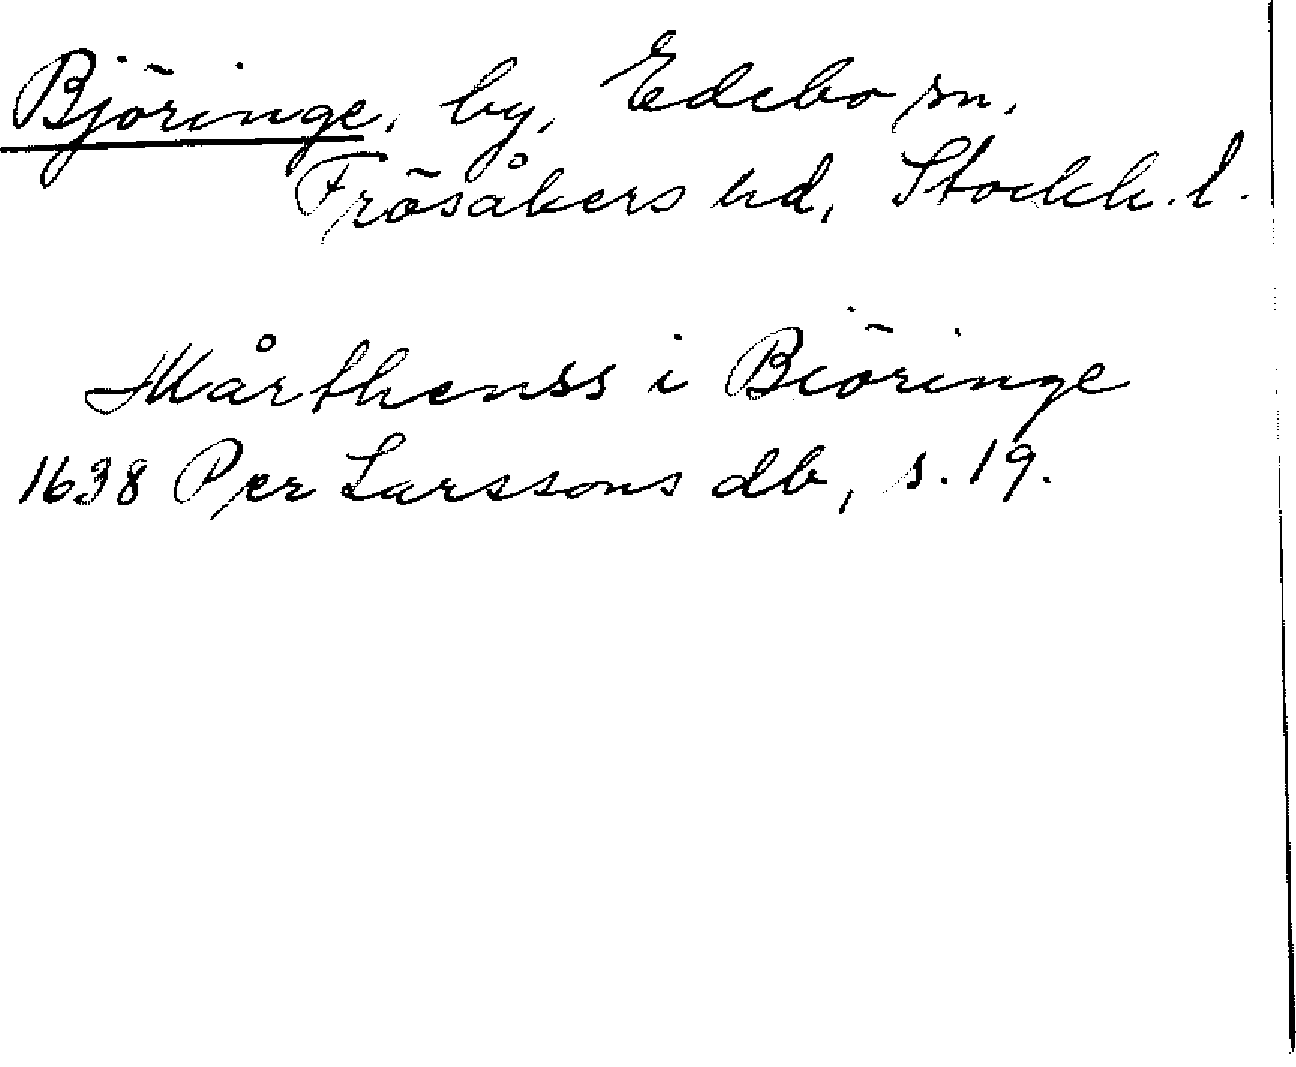 Björinge, by, Edebo sn,
Frösåkers hd, Stockh. l.
Mårthenss i Biöringe
1638 Per Larssons db, s. 19.